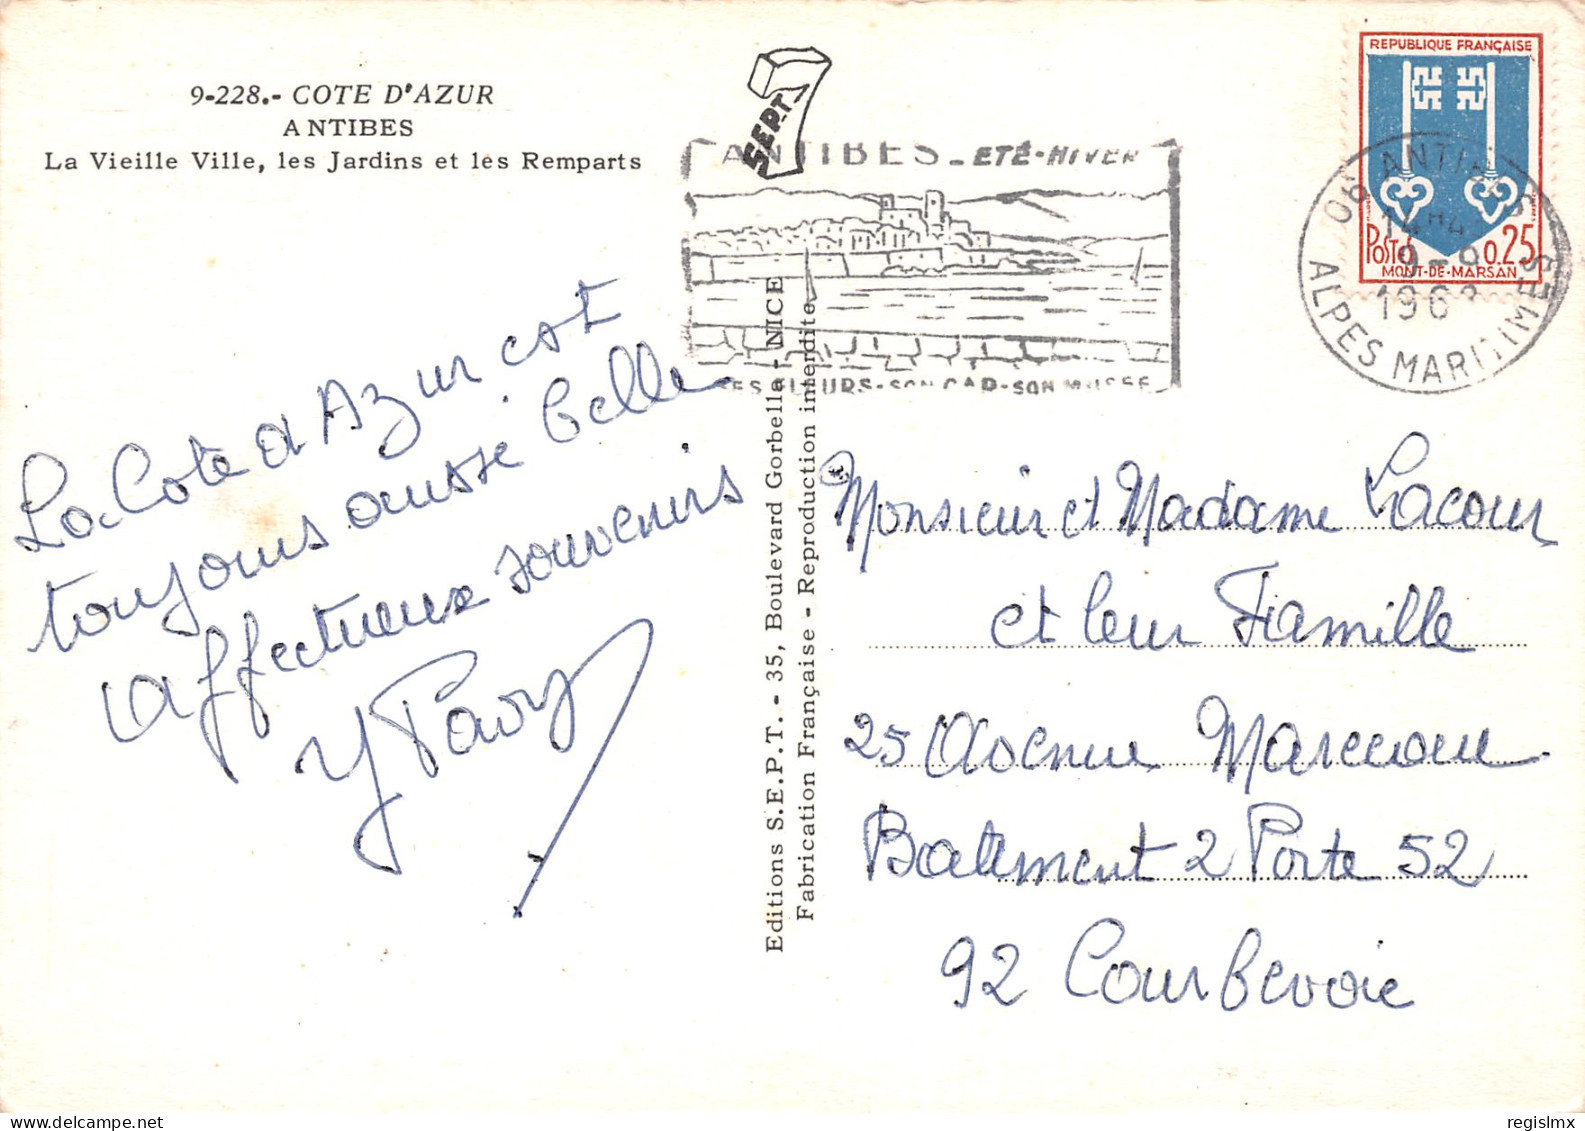 9-228.- COTE D'AZUR
ANTIBES
La Vieille Ville, les Jardins et les Remparts
SEPT
ANTIBES - ETÉ-HIVER
SON CAP-SON MUSEE
REPUBLIQUE FRANÇAISE
Postes 0.25
MONT-DE-MARSAN
06 ANTIBES
14H4
9-9
196
ALPES MARITIMES
La Cote d Azur est
toujours aussi belle
affectueux souvenirs
Y Pavy
Editions S.E.P.T. - 35, Boulevard Gorbella - NICE
Fabrication Française - Reproduction interdite
Monsieur et Madame Lacour
et leur Famille
25 Avenue Marceau
Batiment 2 Porte 52
92 Courbevoie
regislmx